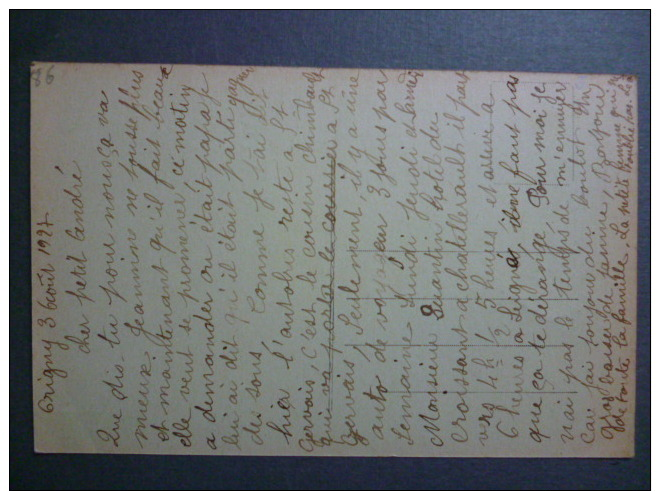 Origny 3 Août 1937
Cher petit André
Que dis-tu pour nous ça va
mieux Jeannine ne tousse plus
et maintenant qu'il fait beau
elle veut se promener ce matin
a demander ou était papa je
lui ai dit qu'il était parti gagner
des sous, Comme je t'ai dit
hier l'autobus reste a St
Gervais, c'est le cousin
qui va a St
Gervais, Seulement, il y a une
auto de voyageur 3 jours par
semaine Lundi Jeudi et Samedi
Monsieur Quantin hotel du
croissant a chatellerault il part
vers 4h 1/2 5 heures et arrive a
6 heures a il ne faut pas
que ça te dérange Pour moi je
n'ai pas le temps de m'ennuyer
Car j'ai toujours du boulot
Gros baiser de Jeannine, Bonjour
de toute la famille. La petite